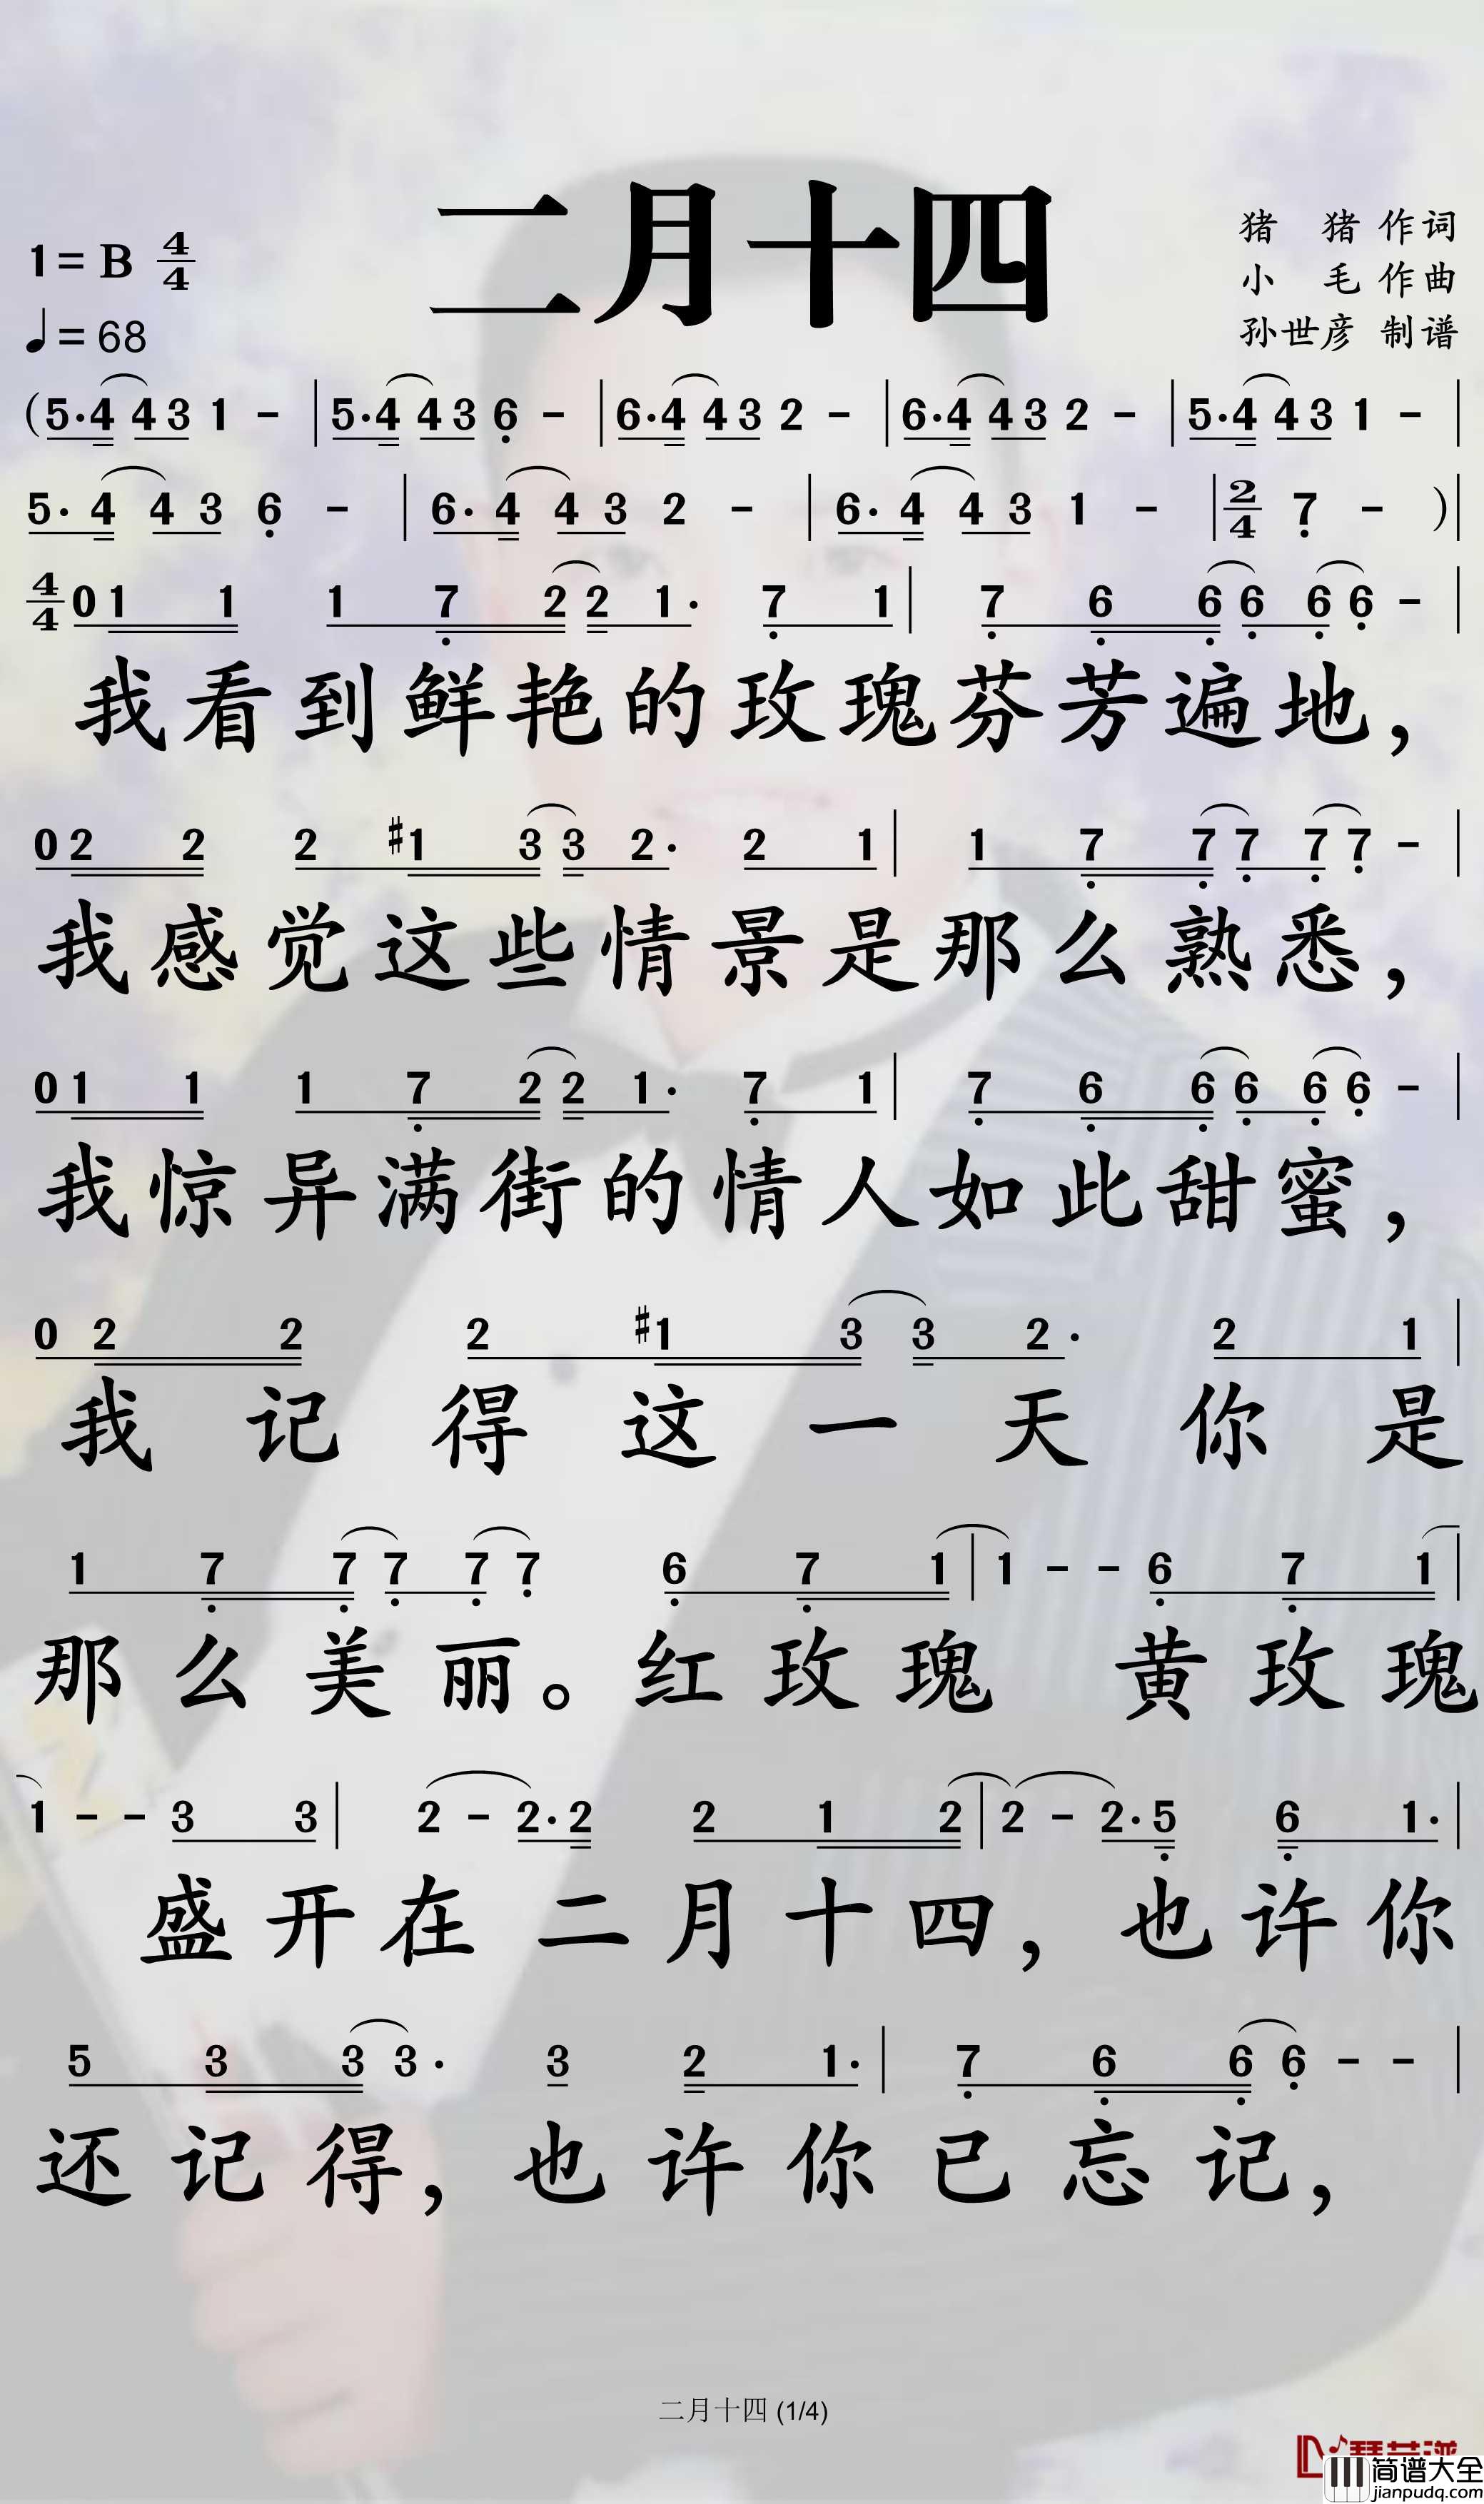 二月十四
1=B 4/4
♩=68
猪 猪 作词
小 毛 作曲
孙世彦 制谱
(5·4 43 1 - | 5·4 43 6 - | 6·4 43 2 - | 6·4 43 2 - | 5·4 43 1 - |
5·4 43 6 - | 6·4 43 2 - | 6·4 43 1 - | 2/4 7 - )|
4/4 01 1 1 7 22 1· 7 1 | 7 6 66 66 - |
我看到鲜艳的玫瑰芬芳遍地，
02 2 2 #1 33 2· 2 1 | 1 7 77 77 - |
我感觉这些情景是那么熟悉，
01 1 1 7 22 1· 7 1 | 7 6 66 66 - |
我惊异满街的情人如此甜蜜，
0 2 2 2 #1 3 3 2· 2 1 |
我记得这一天你是
1 7 77 77 6 7 1 | 1 - - 6 7 1 |
那么美丽。红玫瑰 黄玫瑰
1 - - 3 3 | 2 - 2·2 2 1 2 | 2 - 2·5 6 1· |
盛开在二月十四，也许你
5 3 3 3· 3 2 1· | 7 6 6 6 - - |
还记得，也许你已忘记，
二月十四 (1/4)
简谱大全
jianpudq.com